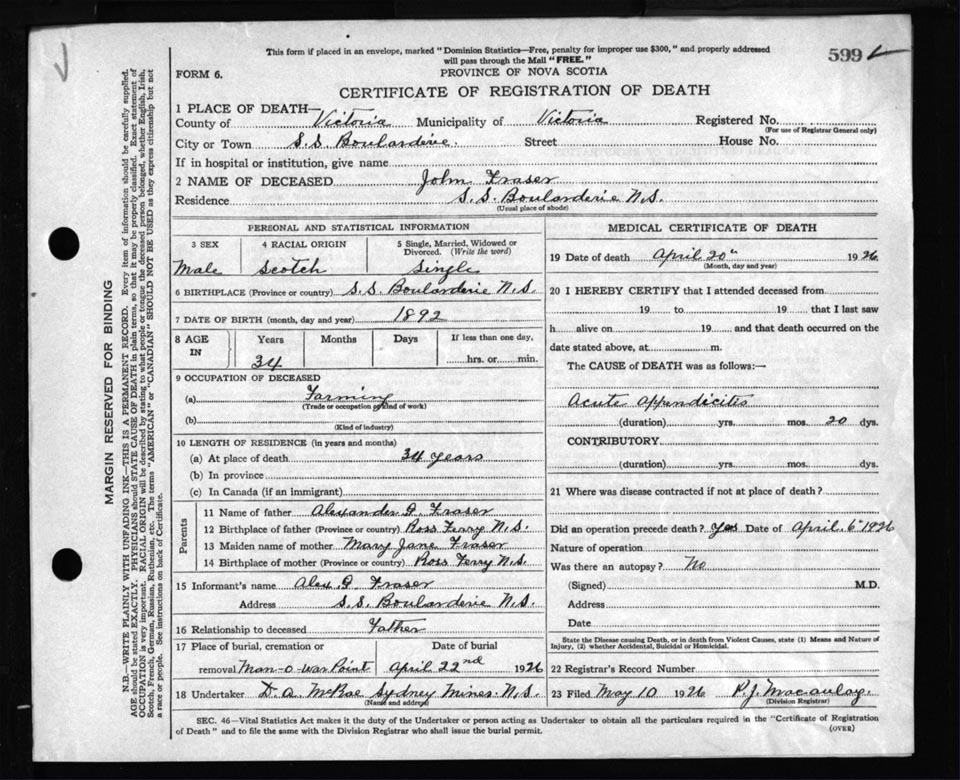 This form if placed in an envelope, marked "Dominion Statistics—Free, penalty for improper use $300," and properly addressed
will pass through the Mail "FREE."
599
FORM 6.
PROVINCE OF NOVA SCOTIA
CERTIFICATE OF REGISTRATION OF DEATH
1 PLACE OF DEATH—
County of Victoria Municipality of Victoria Registered No.
(For use of Registrar General only)
City or Town S.S. Boularderie. Street House No.
If in hospital or institution, give name
2 NAME OF DECEASED John Fraser
Residence S.S. Boularderie N.S.
(Usual place of abode)
PERSONAL AND STATISTICAL INFORMATION
3 SEX 4 RACIAL ORIGIN 5 Single, Married, Widowed or
Divorced. (Write the word)
Male Scotch Single
6 BIRTHPLACE (Province or country) S.S. Boularderie N.S.
7 DATE OF BIRTH (month, day and year) 1892
8 AGE IN Years Months Days If less than one day,
34 hrs. or min.
9 OCCUPATION OF DECEASED
(a) Farming
(Trade or occupation or kind of work)
(b)
(Kind of industry)
10 LENGTH OF RESIDENCE (in years and months)
(a) At place of death 34 years
(b) In province
(c) In Canada (if an immigrant)
Parents
11 Name of father Alexander J. Fraser
12 Birthplace of father (Province or country) Ross Ferry N.S.
13 Maiden name of mother Mary Jane Fraser
14 Birthplace of mother (Province or country) Ross Ferry N.S.
15 Informant's name Alex. J. Fraser
Address S.S. Boularderie N.S.
16 Relationship to deceased Father
17 Place of burial, cremation or Date of burial
removal Man-o-War Point April 22nd 1926
18 Undertaker D. A. McRae Sydney Mines. N.S.
(Name and address)
MEDICAL CERTIFICATE OF DEATH
19 Date of death April 20th 1926
(Month, day and year)
20 I HEREBY CERTIFY that I attended deceased from
19 to 19 that I last saw
h alive on 19 and that death occurred on the
date stated above, at m.
The CAUSE of DEATH was as follows:—
Acute Appendicitis
(duration) yrs. mos. 20 dys.
CONTRIBUTORY
(duration) yrs. mos. dys.
21 Where was disease contracted if not at place of death?
Did an operation precede death? Yes Date of April. 6th 1926
Nature of operation
Was there an autopsy? No
(Signed) M.D.
Address
Date
State the Disease causing Death, or in death from Violent Causes, state (1) Means and Nature of
Injury, (2) whether Accidental, Suicidal or Homicidal.
22 Registrar's Record Number
23 Filed May 10 1926 P.J. Macaulay.
(Division Registrar)
SEC. 46—Vital Statistics Act makes it the duty of the Undertaker or person acting as Undertaker to obtain all the particulars required in the "Certificate of Registration
of Death" and to file the same with the Division Registrar who shall issue the burial permit. (OVER)
MARGIN RESERVED FOR BINDING
N.B.—WRITE PLAINLY WITH UNFADING INK—THIS IS A PERMANENT RECORD. Every item of information should be carefully supplied.
AGE should be stated EXACTLY. PHYSICIANS should STATE CAUSE OF DEATH in plain terms, so that it may be properly classified. Exact statement of
OCCUPATION is very important. RACIAL ORIGIN will be described by stating to what people or tongue the deceased person belonged, whether English, Irish,
Scotch, French, German, Russian, Ruthenian, etc. The terms "AMERICAN" or "CANADIAN" SHOULD NOT BE USED as they express citizenship but not
a race or people. See instructions on back of Certificate.